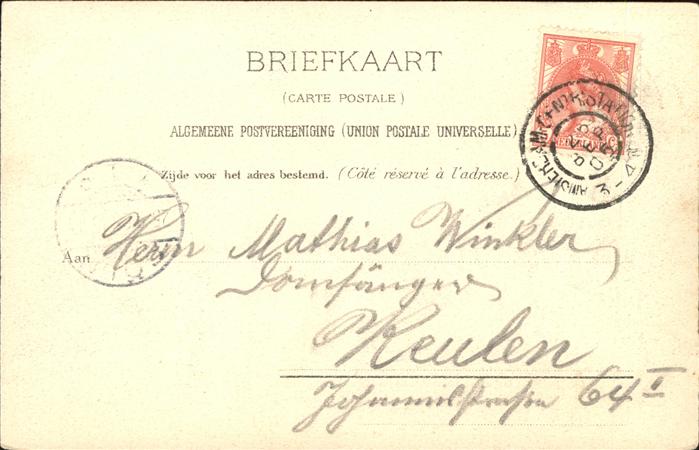 BRIEFKAART
(CARTE POSTALE)
ALGEMEENE POSTVEREENIGING (UNION POSTALE UNIVERSELLE)
Zijde voor het adres bestemd. (Côté réservé à l'adresse.)
Aan Herrn Mathias Winkler
Domsänger
Keulen
Johannisstrasse 64 II